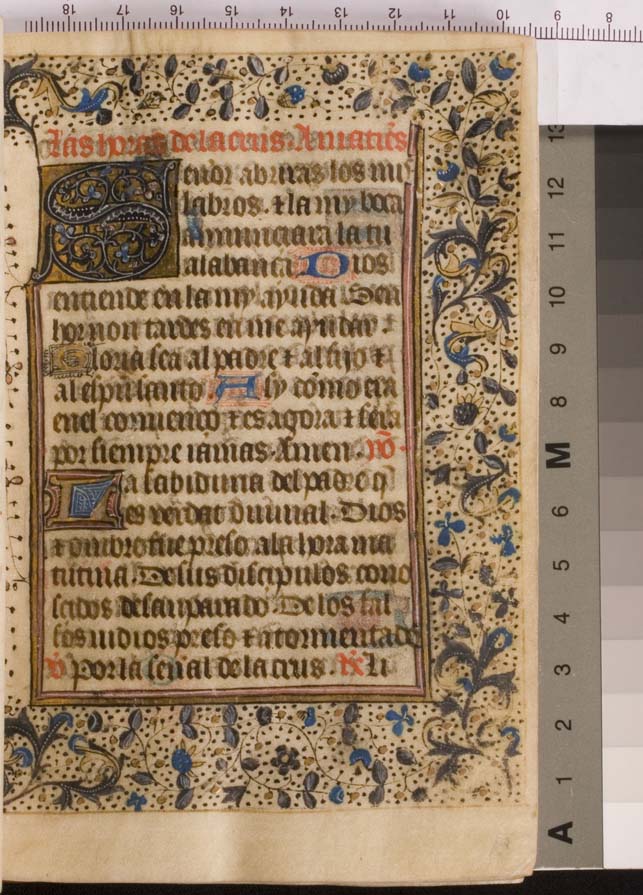 Las horas dela crus. A maitiẽs
Senor abriras los mi
labros. ⁊ la my boca
anunnciara la tu
alabança. Dios
entiende en la my ayuda. Sen
hor non tardes en me ayudar. ⁊
Gloria sea al padre ⁊ al fijo ⁊
al espũ santo. Asy como era
enel comienço ⁊ es agora ⁊ sera
por siempre iamas. Amen. yõ.
La sabiduria del padre q̃
es verdat diuinal. Dios
⁊ ombre fue preso ala hora ma
tutina. De sus discipulos cono
scidos desanparado. De los fal
sos iudios preso ⁊ atormentado
℣ por la señal dela crus. ℟ Li
18 17 16 15 14 13 12 11 10 9 8
13
12
11
10
9
8
M
6
5
4
3
2
1
A